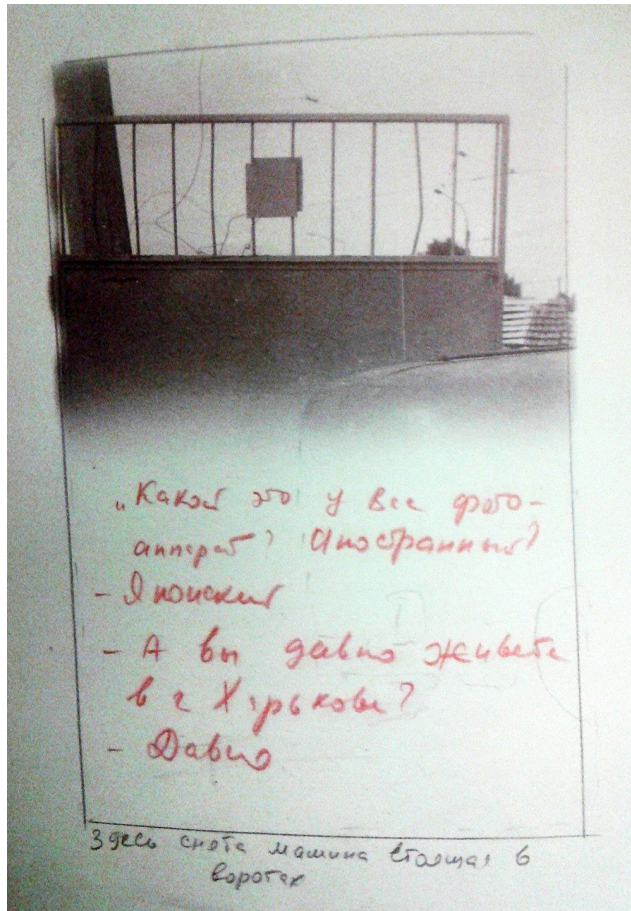 „Какой это у вас фото-
аппарат? Иностранный?
- Японский
- А вы давно живете
в г Харькове?
- Давно
Здесь снята машина стоящая в
воротах